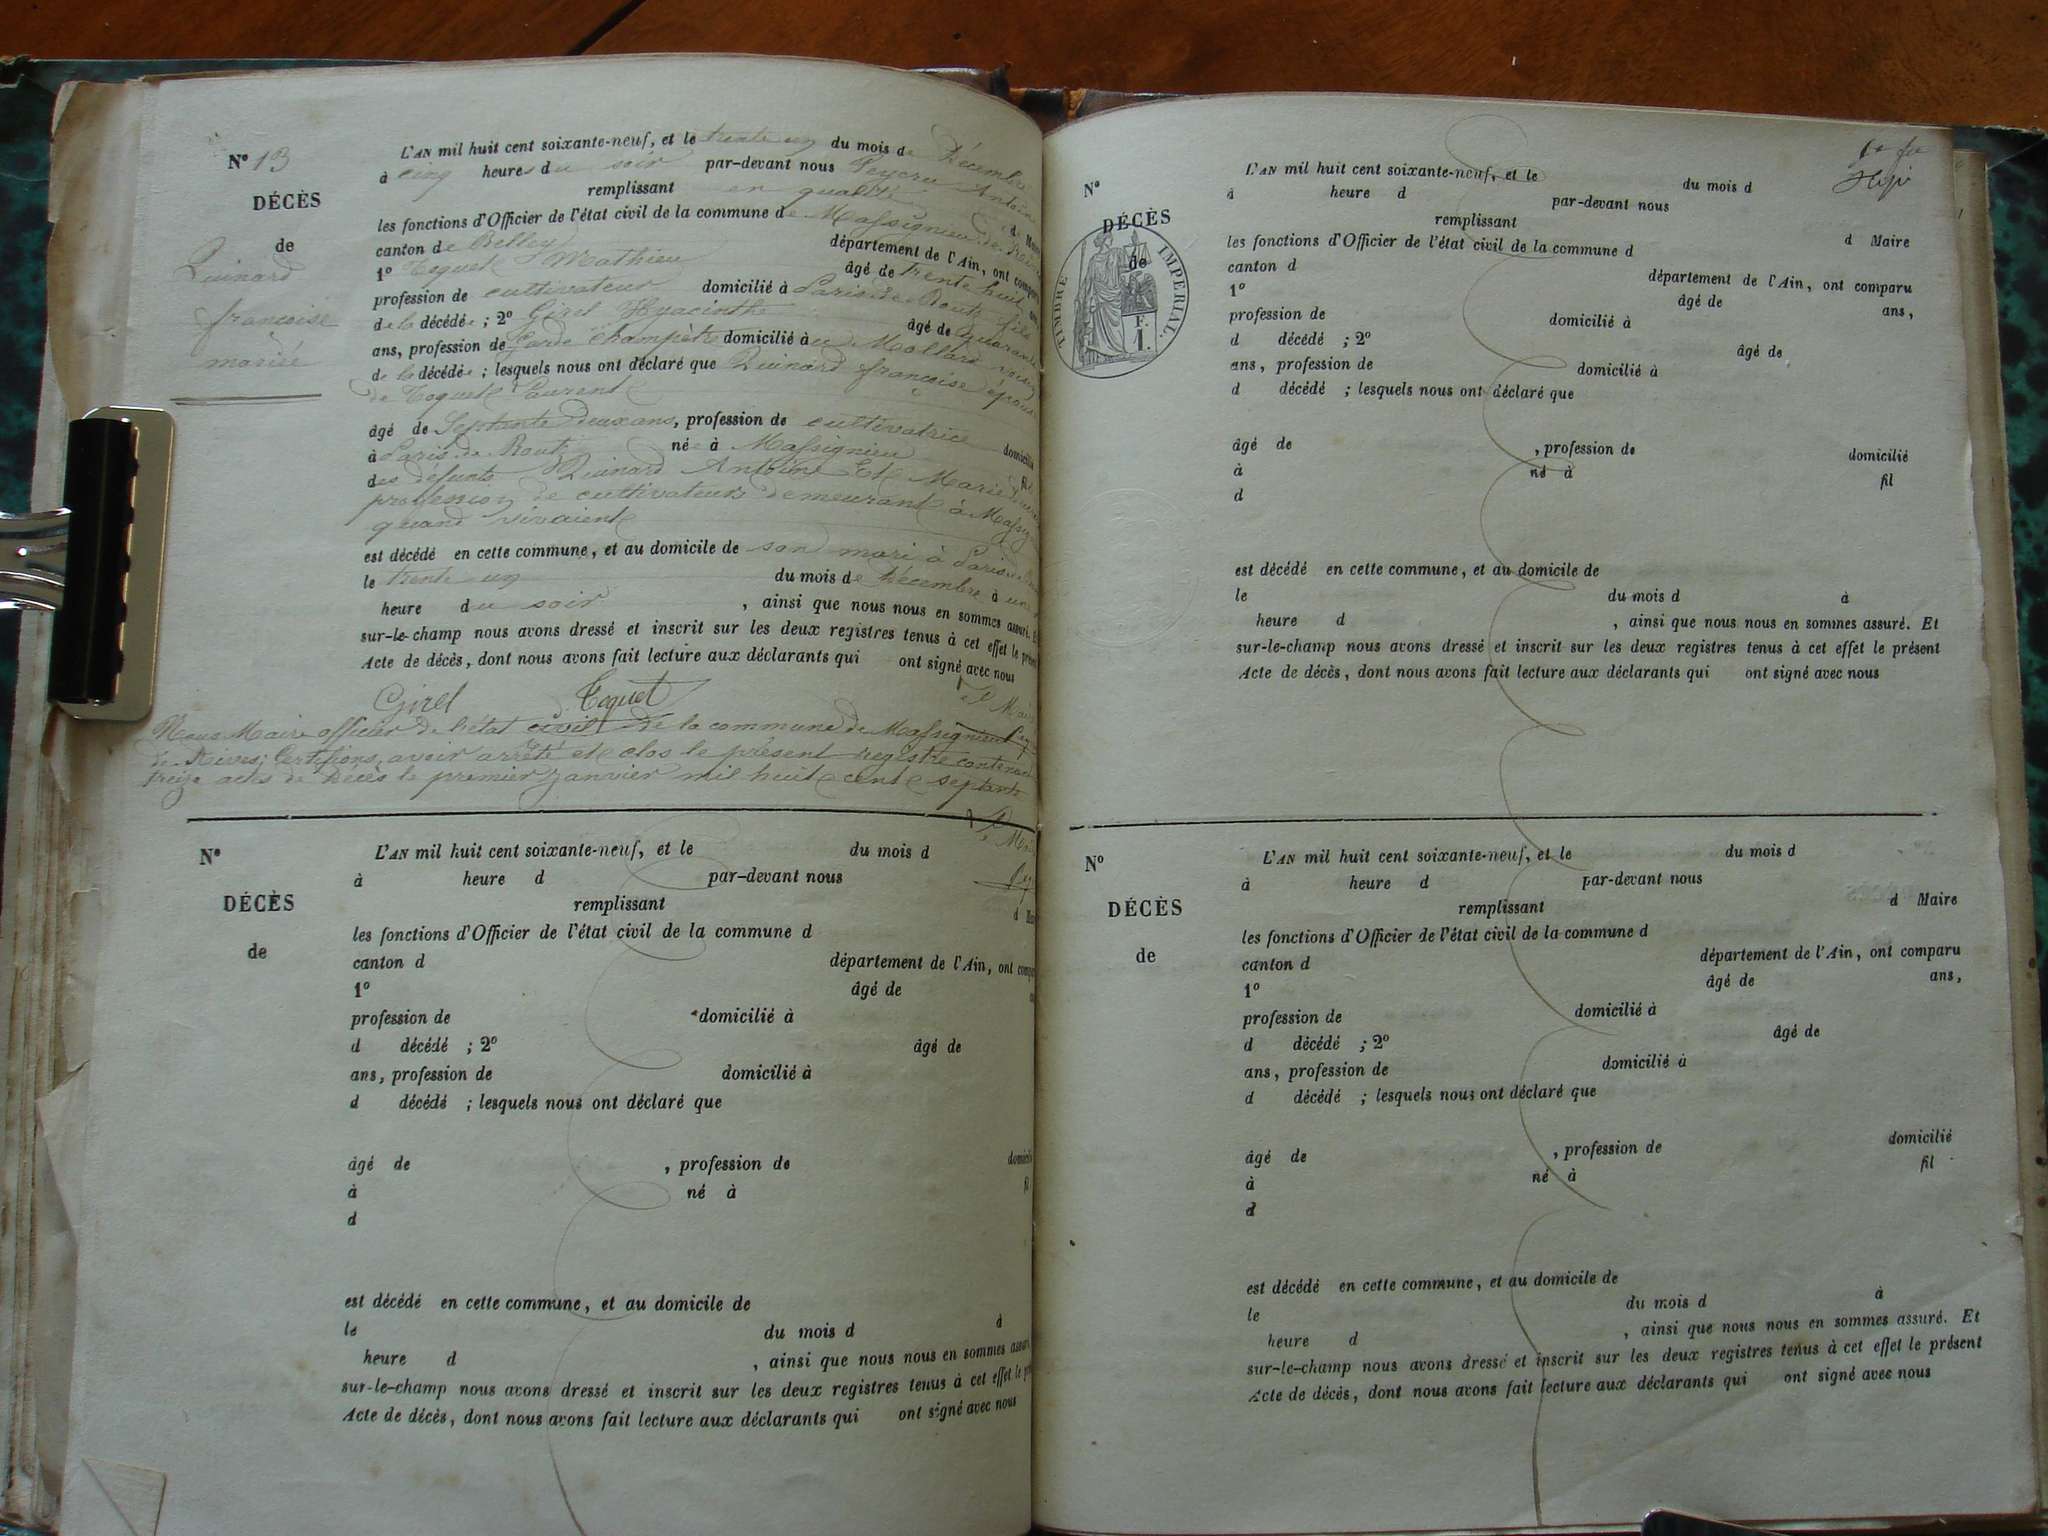 N° 13
DÉCÈS
de
Quinard
françoise
mariée
L'AN mil huit cent soixante-neuf, et le trente un du mois de Décembre
à cinq heures du soir par-devant nous Peycru Antoine
remplissant en qualité d Mai
les fonctions d'Officier de l'état civil de la commune de Massignieu de Rives
canton de Belley département de l'Ain, ont comparu
1° Toquet Mathieu âgé de trente huit ans
profession de cultivateur domicilié à Paris de Bout fils
de la décédée ; 2° Girel Hyacinthe âgé de quarante
ans, profession de Garde Champêtre domicilié à au Mollard voisin
de la décédée ; lesquels nous ont déclaré que Quinard françoise épouse
de Toquet Laurent
âgé de Septante deux ans, profession de cultivatrice domicilié
à né à Massignieu fil
des défunts Quinard Antoine Et Marie
profession de cultivateurs demeurant à Massig
quand vivaient
est décédé en cette commune, et au domicile de son mari à
le trente un du mois de Décembre à un
heure du soir , ainsi que nous nous en sommes assuré. Et
sur-le-champ nous avons dressé et inscrit sur les deux registres tenus à cet effet le présent
Acte de décès, dont nous avons fait lecture aux déclarants qui ont signé avec nous
Girel Toquet
Nous Maire officier de l'état civil de la commune de Massignieu
de Rives, Certifions avoir arrêté et clos le présent registre contenant
treize actes de Décès le premier janvier mil huit cent septante
N°
DÉCÈS
de
L'AN mil huit cent soixante-neuf, et le du mois d
à heure d par-devant nous
remplissant d Mai
les fonctions d'Officier de l'état civil de la commune d
canton d département de l'Ain, ont compar
1° âgé de
profession de domicilié à
d décédé ; 2° âgé de
ans, profession de domicilié à
d décédé ; lesquels nous ont déclaré que
âgé de , profession de domicilié
à né à fil
d
est décédé en cette commune, et au domicile de
le du mois d à
heure d , ainsi que nous nous en sommes assuré
sur-le-champ nous avons dressé et inscrit sur les deux registres tenus à cet effet le pré
Acte de décès, dont nous avons fait lecture aux déclarants qui ont signé avec nous
N°
DÉCÈS
de
TIMBRE IMPÉRIAL.
F.
1.
L'AN mil huit cent soixante-neuf, et le du mois d
à heure d par-devant nous
remplissant d Maire
les fonctions d'Officier de l'état civil de la commune d
canton d département de l'Ain, ont comparu
1° âgé de ans,
profession de domicilié à
d décédé ; 2° âgé de
ans, profession de domicilié à
d décédé ; lesquels nous ont déclaré que
âgé de , profession de domicilié
à né à fil
d
est décédé en cette commune, et au domicile de
le du mois d à
heure d , ainsi que nous nous en sommes assuré. Et
sur-le-champ nous avons dressé et inscrit sur les deux registres tenus à cet effet le présent
Acte de décès, dont nous avons fait lecture aux déclarants qui ont signé avec nous
N°
DÉCÈS
de
L'AN mil huit cent soixante-neuf, et le du mois d
à heure d par-devant nous
remplissant d Maire
les fonctions d'Officier de l'état civil de la commune d
canton d département de l'Ain, ont comparu
1° âgé de ans,
profession de domicilié à
d décédé ; 2° âgé de
ans, profession de domicilié à
d décédé ; lesquels nous ont déclaré que
âgé de , profession de domicilié
à né à fil
d
est décédé en cette commune, et au domicile de
le du mois d à
heure d , ainsi que nous nous en sommes assuré. Et
sur-le-champ nous avons dressé et inscrit sur les deux registres tenus à cet effet le présent
Acte de décès, dont nous avons fait lecture aux déclarants qui ont signé avec nous